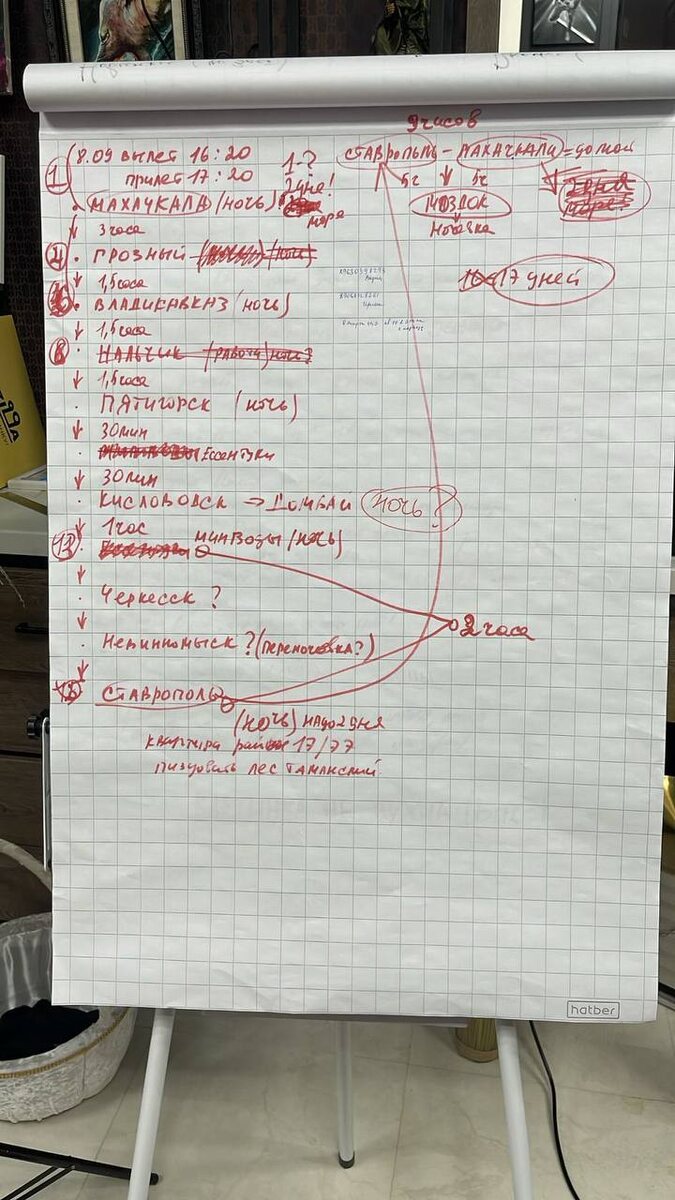 9 часов
8.09 вылет 16:20
прилет 17:20
1-?
2 дне!
море
СТАВРОПОЛЬ - МАХАЧКАЛА = домой
5ч
5ч
МОЗДОК
ночевка
2 дня
море?
17 дней
1
МАХАЧКАЛА (ночь)
3 часа
4
ГРОЗНЫЙ (ночь)
1,5 часа
6
ВЛАДИКАВКАЗ (ночь)
1,5 часа
8
НАЛЬЧИК (работа) ночь?
1,5 часа
ПЯТИГОРСК (ночь)
30 мин
Ессентуки
30 мин
КИСЛОВОДСК → ДОМБАЙ (ночь?)
1 час
МИНВОДЫ (ночь)
Черкесск ?
2 часа
Невинномыск ? (переночевка?)
СТАВРОПОЛЬ
(ночь) надо 2 дня
квартира район 17/77
лес Таманский
hatber